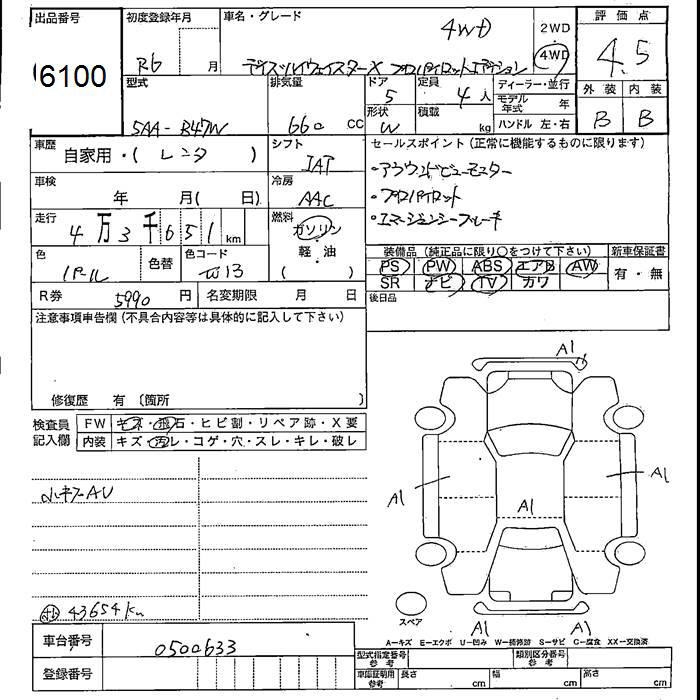 出品番号
6100
初度登録年月
R6 月
車名・グレード
4WD
デイズハイウェイスターX プロパイロットエディション
2WD
4WD
評価点
4.5
外装 内装
B B
型式
5AA-B47W
排気量
660 cc
ドア
5
形状
W
定員
4人
積載
kg
ディーラー・並行
モデル年式 年
ハンドル 左・右
車歴
自家用・(レンタ)
シフト
IAT
セールスポイント(正常に機能するものに限ります)
・アラウンドビューモニター
・プロパイロット
・エマージェンシーブレーキ
車検
年 月( 日)
冷房
AAC
走行
4万3千651km
燃料
ガソリン
・
軽油
( )
色
パール
色替
色コード
W13
装備品(純正品に限り○をつけて下さい)
PS PW ABS エアB AW
SR ナビ TV カワ
新車保証書
有・無
後日品
R券 5990円
名変期限 月 日
注意事項申告欄(不具合内容等は具体的に記入して下さい)
修復歴 有 〔箇所 〕
検査員記入欄
FW キズ・飛石・ヒビ割・リペア跡・X要
内装 キズ・汚レ・コゲ・穴・スレ・キレ・破レ
43654km
A1
A1
A1
A1
A1
A1
スペア
A―キズ E―エクボ U―凹み W―補修跡 S―サビ C―腐食 XX―交換済
車台番号
0500633
登録番号
型式指定番号 参考
類別区分番号 参考
車庫証明用 参考
長さ cm
幅 cm
高さ cm